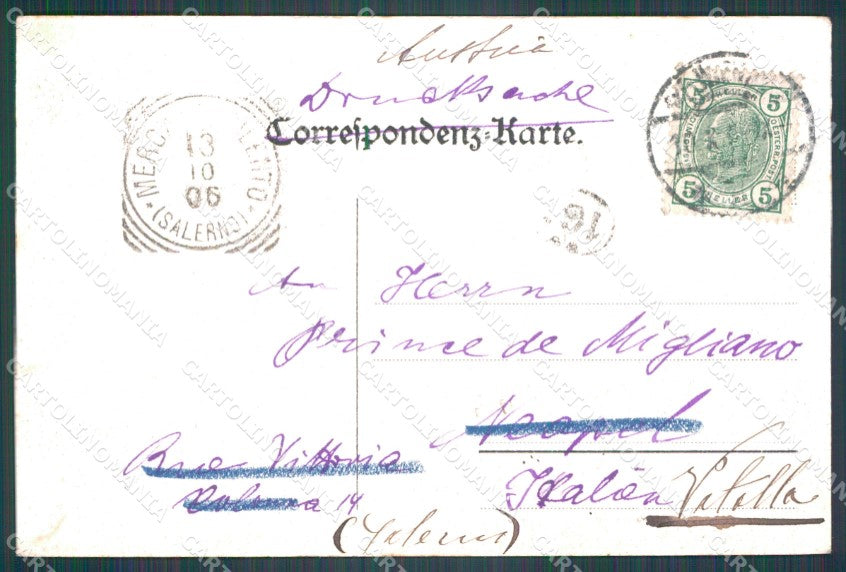 Austria
Drucksache
Correspondenz-Karte.
MERC CILENTO
(SALERNO)
13
10
06
5 5
5 5
HELLER
16
An Herrn
Prince de Migliano
Neapel
Rue Vittoria
Colonna 14
Italien Vatolla
(Salerno)
CARTOLINOMANIA